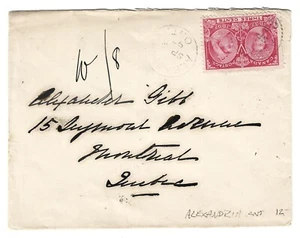 10/8
Alexander Gibb
15 Seymour Avenue
Montreal
Quebec
ALEXANDRIA ONT 12-